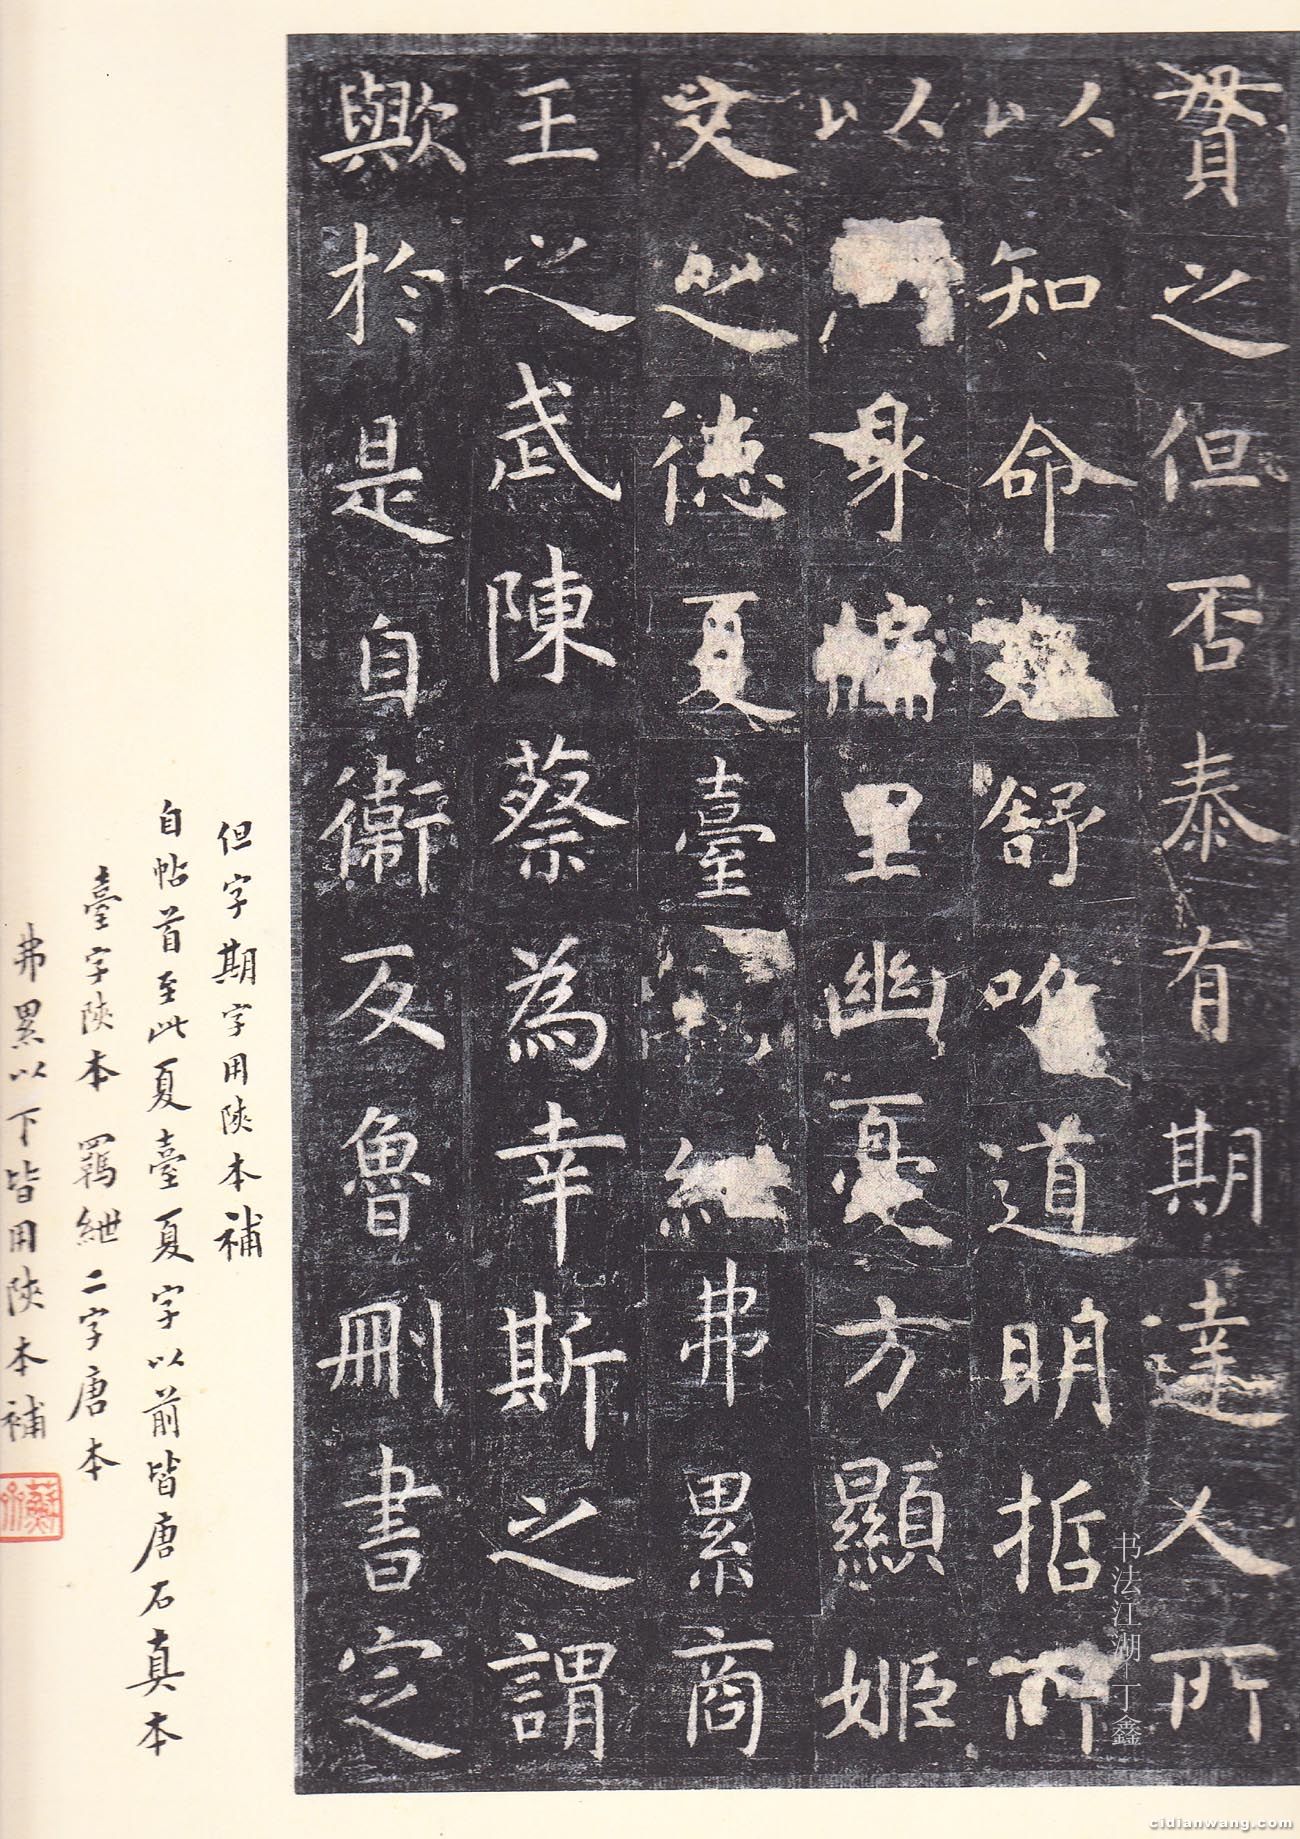 貫之但否泰有期達人所
以知命舒唯道明哲所
以身牖里幽憂方顯姬
文之德夏臺紲弗累商
王之武陳蔡為幸斯之謂
歟於是自衛反魯刪書定
但字期字用陝本補
自帖首至此夏臺夏字以前皆唐石真本
臺字陝本 羈紲二字唐本
弗累以下皆用陝本補
书法江湖—丁鑫
cidianwang.com